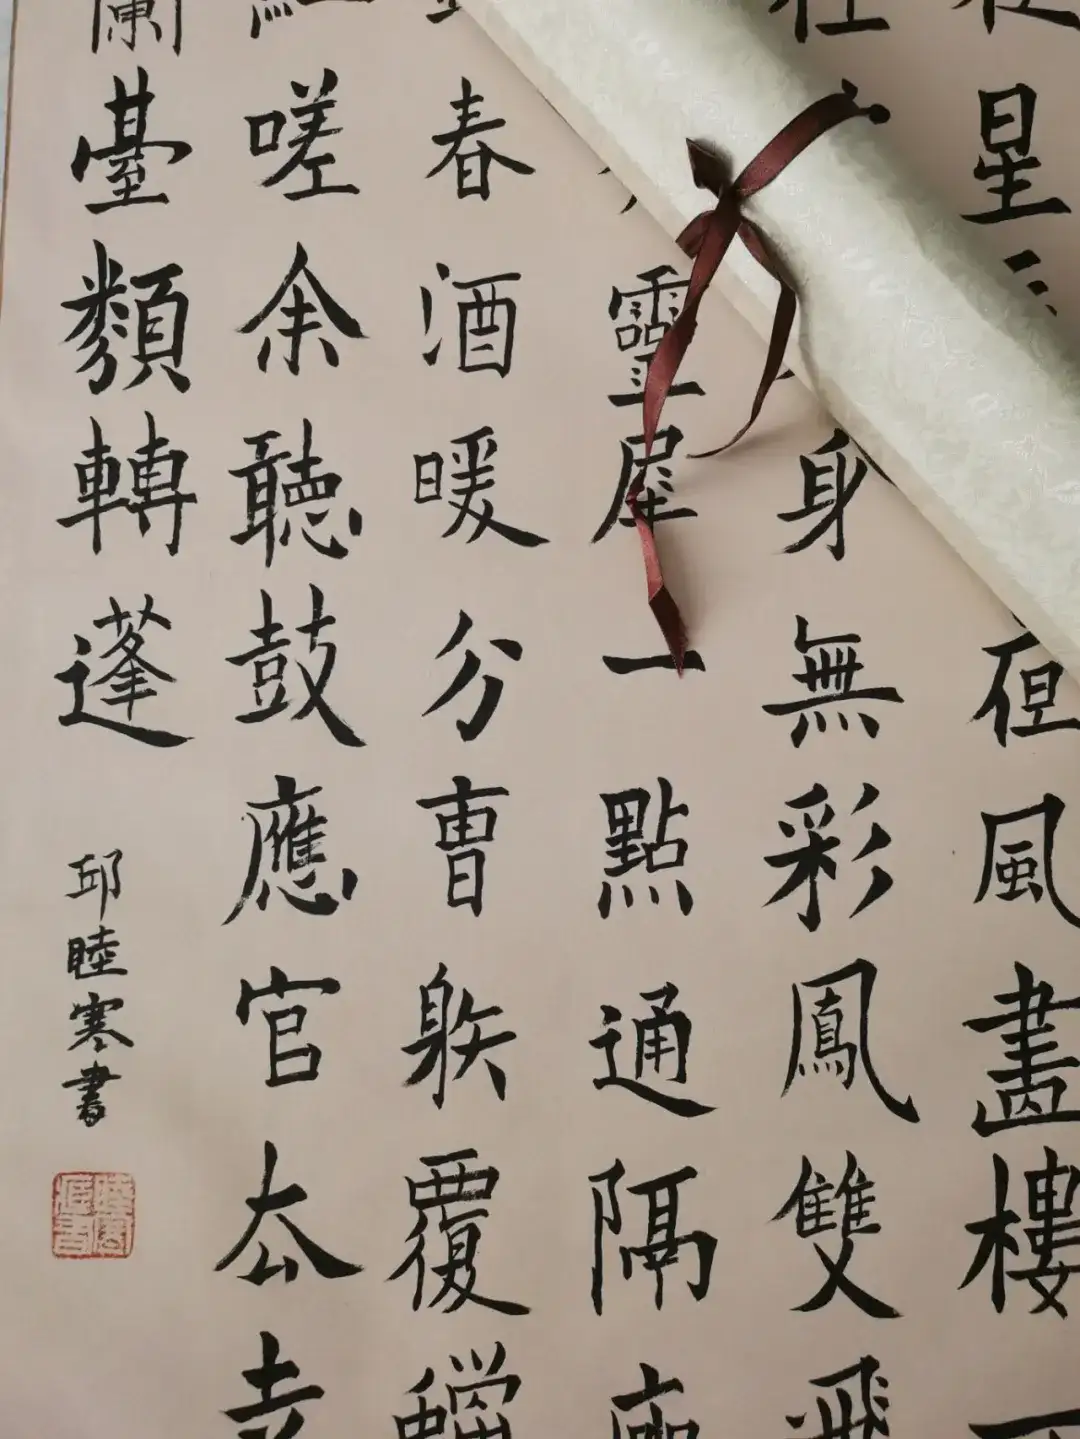 星夜風畫樓
身無彩鳳雙飛
靈犀一點通隔座
春酒暖分曹射覆蠟
嗟余聽鼓應官去走
蘭臺類轉蓬
邱睦寒書